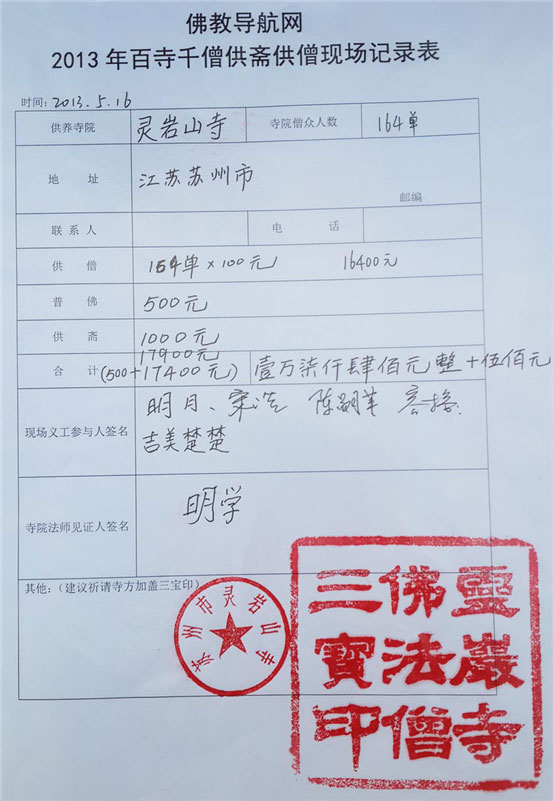 佛教导航网
2013年百寺千僧供斋供僧现场记录表
时间:2013.5.16
供养寺院 灵岩山寺 寺院僧众人数 164单
地 址 江苏苏州市 邮编
联系人 电 话
供 僧 164单×100元 16400元
普 佛 500元
供 斋 1000元
17900元
合 计 (500+17400元) 壹万柒仟肆佰元整+伍佰元
现场义工参与人签名 明月、宋浩
吉美楚楚
寺院法师见证人签名 明学
其他:(建议祈请寺方加盖三宝印)
苏州市灵岩山寺
靈巖寺
佛法僧
三寶印